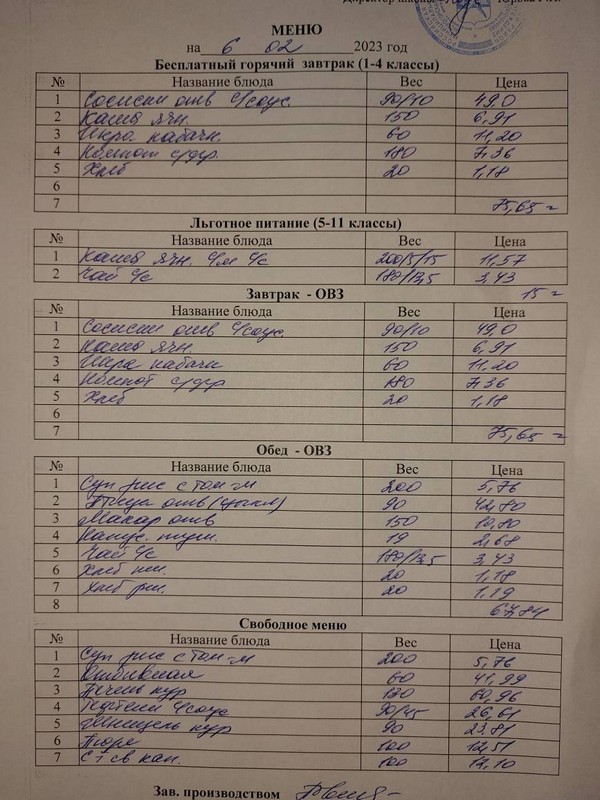 Директор школы
МЕНЮ
на 6 02 2023 год
Бесплатный горячий завтрак (1-4 классы)
№ Название блюда Вес Цена
1 Сосиски отв с/соус. 90/10 49,0
2 Каша ячн. 150 6,91
3 Икра кабачк. 60 11,20
4 Компот с/фр. 180 7,36
5 Хлеб 20 1,18
6
7 75,65
Льготное питание (5-11 классы)
№ Название блюда Вес Цена
1 Каша ячн. с/м с/с 200/5/15 11,57
2 Чай с/с 180/13,5 3,43
15
Завтрак - ОВЗ
№ Название блюда Вес Цена
1 Сосиски отв с/соус. 90/10 49,0
2 Каша ячн. 150 6,91
3 Икра кабачк 60 11,20
4 Компот с/фр 180 7,36
5 Хлеб 20 1,18
6
7 75,65
Обед - ОВЗ
№ Название блюда Вес Цена
1 Суп рис с том-м 200 5,76
2 Птица отв (цыпл) 90 42,80
3 Макар отв 150 10,80
4 Капус. туш. 19 2,68
5 Чай с/с 180/13,5 3,43
6 Хлеб пш. 20 1,18
7 Хлеб рж. 20 1,19
8 67,84
Свободное меню
№ Название блюда Вес Цена
1 Суп рис с том-м 200 5,76
2 Отбивная 60 41,99
3 Печень кур 60,96
4 Тефтели с/соус 90/45 26,61
5 Шницель кур 90 23,81
6 Пюре 100 12,51
7 Ст св кап. 100 17,10
Зав. производством